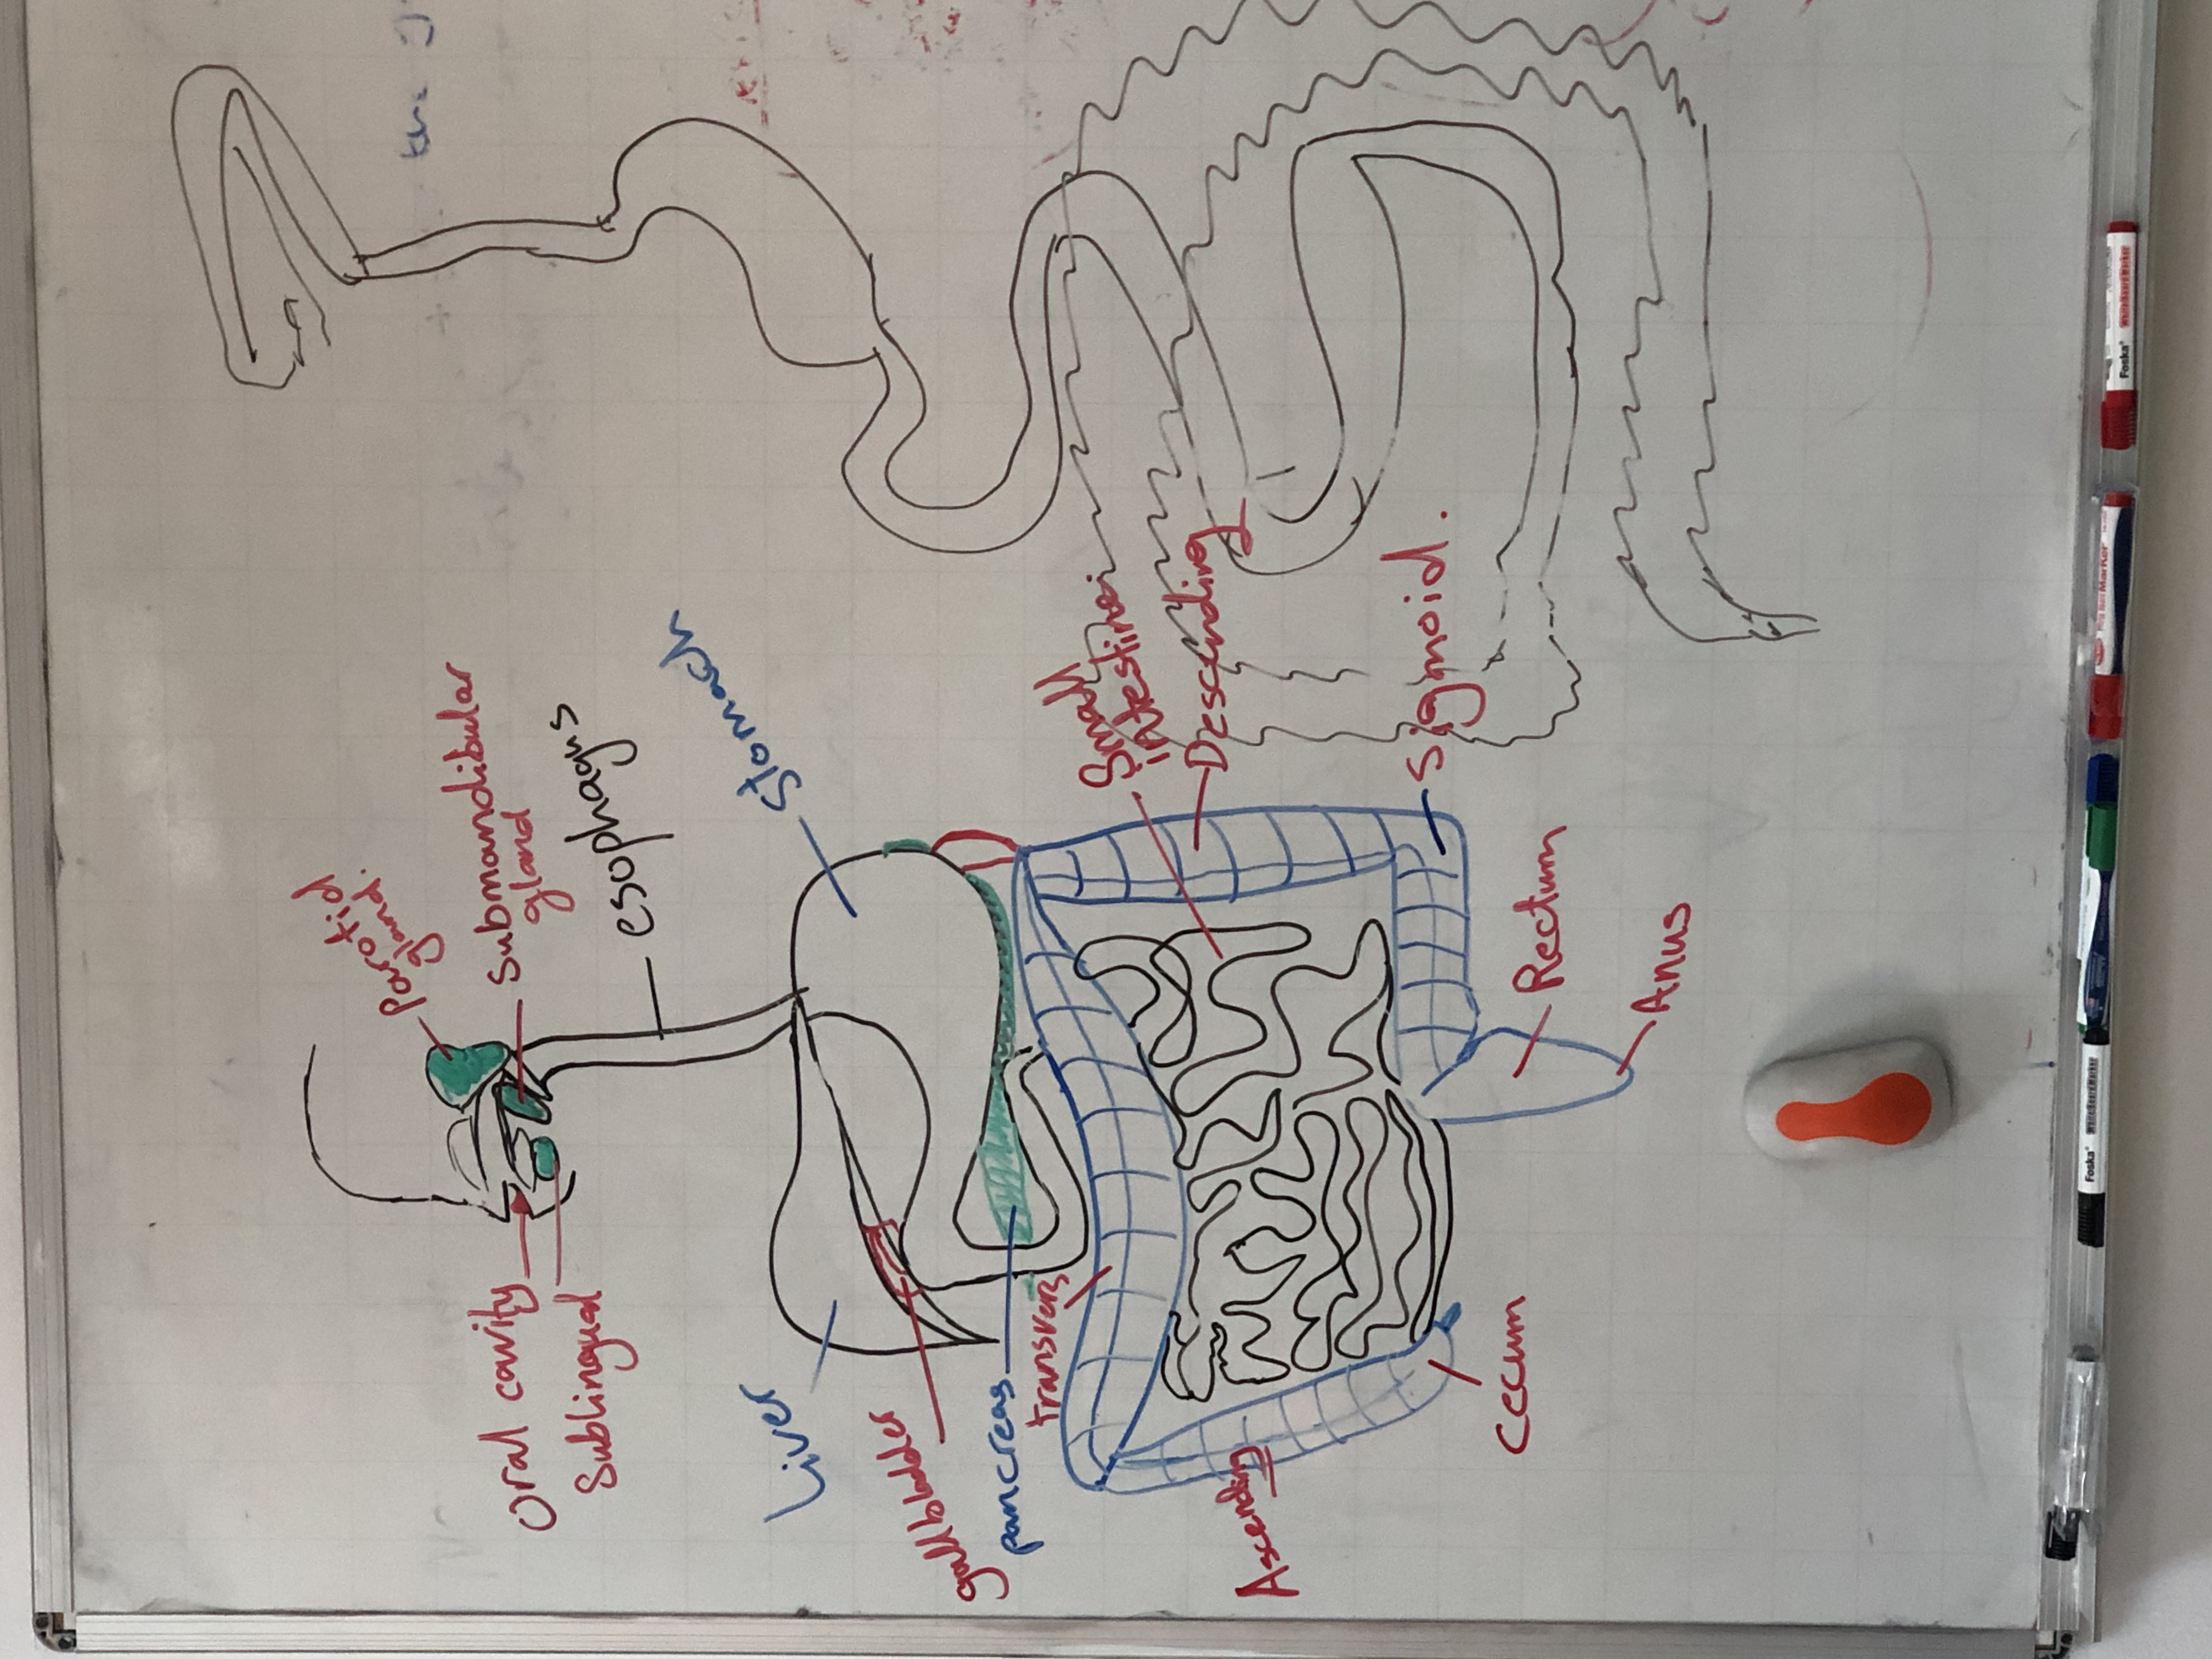 parotid
gland.
Submandibular
gland
esophagus
Oral cavity
Sublingual
Stomach
Liver
gallbladder
pancreas
transvers
Small
intestine.
Descending
Sigmoid.
Assending
Cecum
Rectum
Anus
Foska
Foska